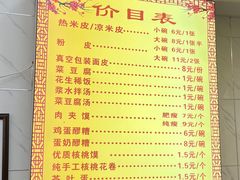 价目表
热米皮/凉米皮 小碗 6元/1张
大碗 8元/1张半
粉皮 小碗 6元/1张
大碗 11元/2张
真空包装面皮 8元/份
菜豆腐 8元/碗
花生稀饭 6元/碗
浆水拌汤 6元/碗
菜豆腐汤 6元/碗
肉夹馍 肥瘦 7元/个
纯瘦 9元/个
鸡蛋醪糟 6元/碗
蛋奶醪糟 8元/碗
优质核桃馍 1.5元/个
纯手工核桃花卷 1.5元/个
茶叶蛋 1.5元/个